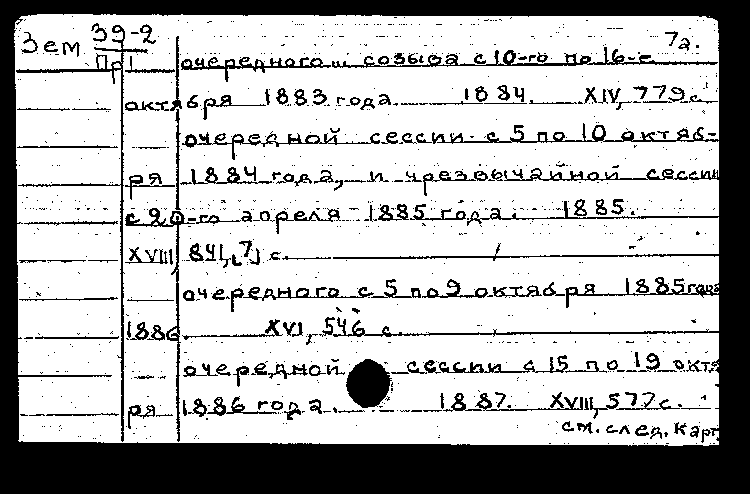 Зем 39-2 7а.
Пр1
очередного созыва с 10-го по 16-е
октября 1883 года 1884. XIV, 779 с.
очередной сессии с 5 по 10 октяб-
ря 1884 года, и чрезвычайной сессии
с 20-го апреля 1885 года. 1885.
XVIII, 841, [7] с.
очередного с 5 по 9 октября 1885 года
1886. XVI, 546 с.
очередной сессии с 15 по 19 октя
ря 1886 года. 1887. XVIII, 577 с.
см. след. карт.